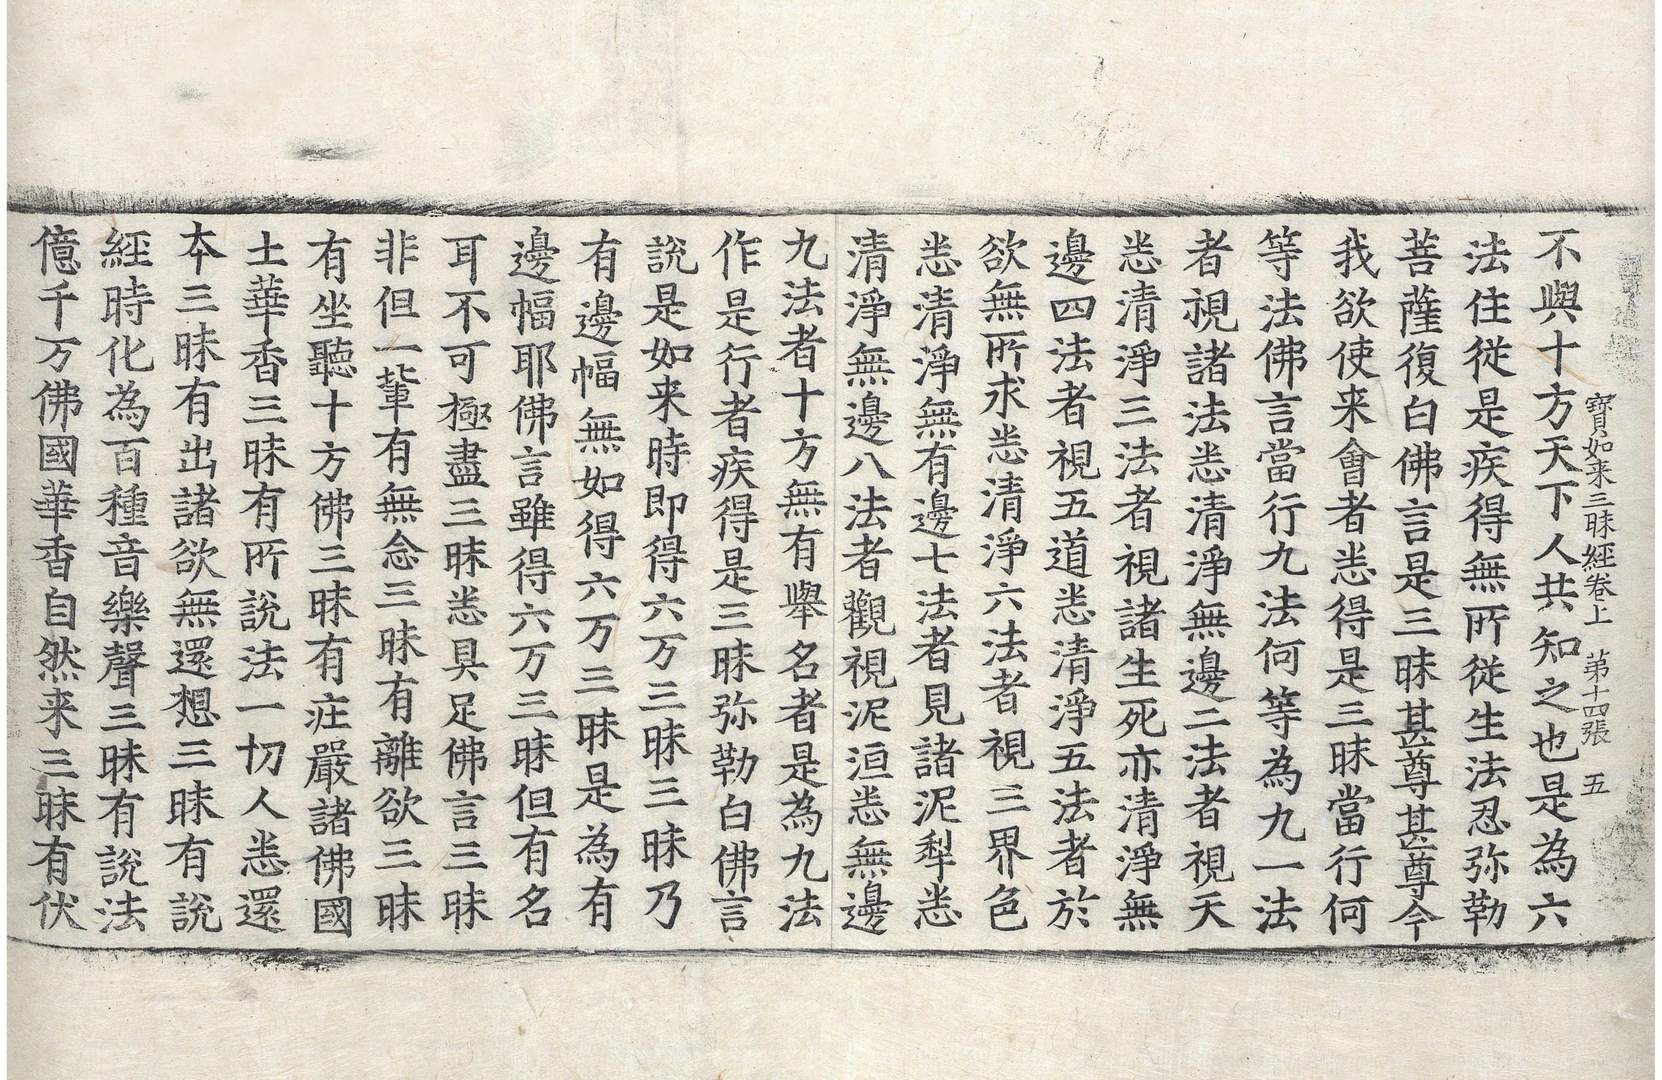 寶如来三昧經卷上　第十四張　五
不與十方天下人共知之也是為六
法住從是疾得無所從生法忍弥勒
菩薩復白佛言是三昧甚尊甚尊今
我欲使来會者悉得是三昧當行何
等法佛言當行九法何等為九一法
者視諸法悉清淨無邊二法者視天
悉清淨三法者視諸生死亦清淨無
邊四法者視五道悉清淨五法者於
欲無所求悉清淨六法者視三界色
悉清淨無有邊七法者見諸泥犁悉
清淨無邊八法者觀視泥洹悉無邊
九法者十方無有舉名者是為九法
作是行者疾得是三昧弥勒白佛言
說是如来時即得六万三昧三昧乃
有邊幅無如得六万三昧是為有
邊幅耶佛言雖得六万三昧但有名
耳不可極盡三昧悉具足佛言三昧
非但一輩有無念三昧有離欲三昧
有坐聽十方佛三昧有庄嚴諸佛國
土華香三昧有所說法一切人悉還
本三昧有出諸欲無還想三昧有說
經時化為百種音樂聲三昧有說法
億千万佛國華香自然来三昧有伏